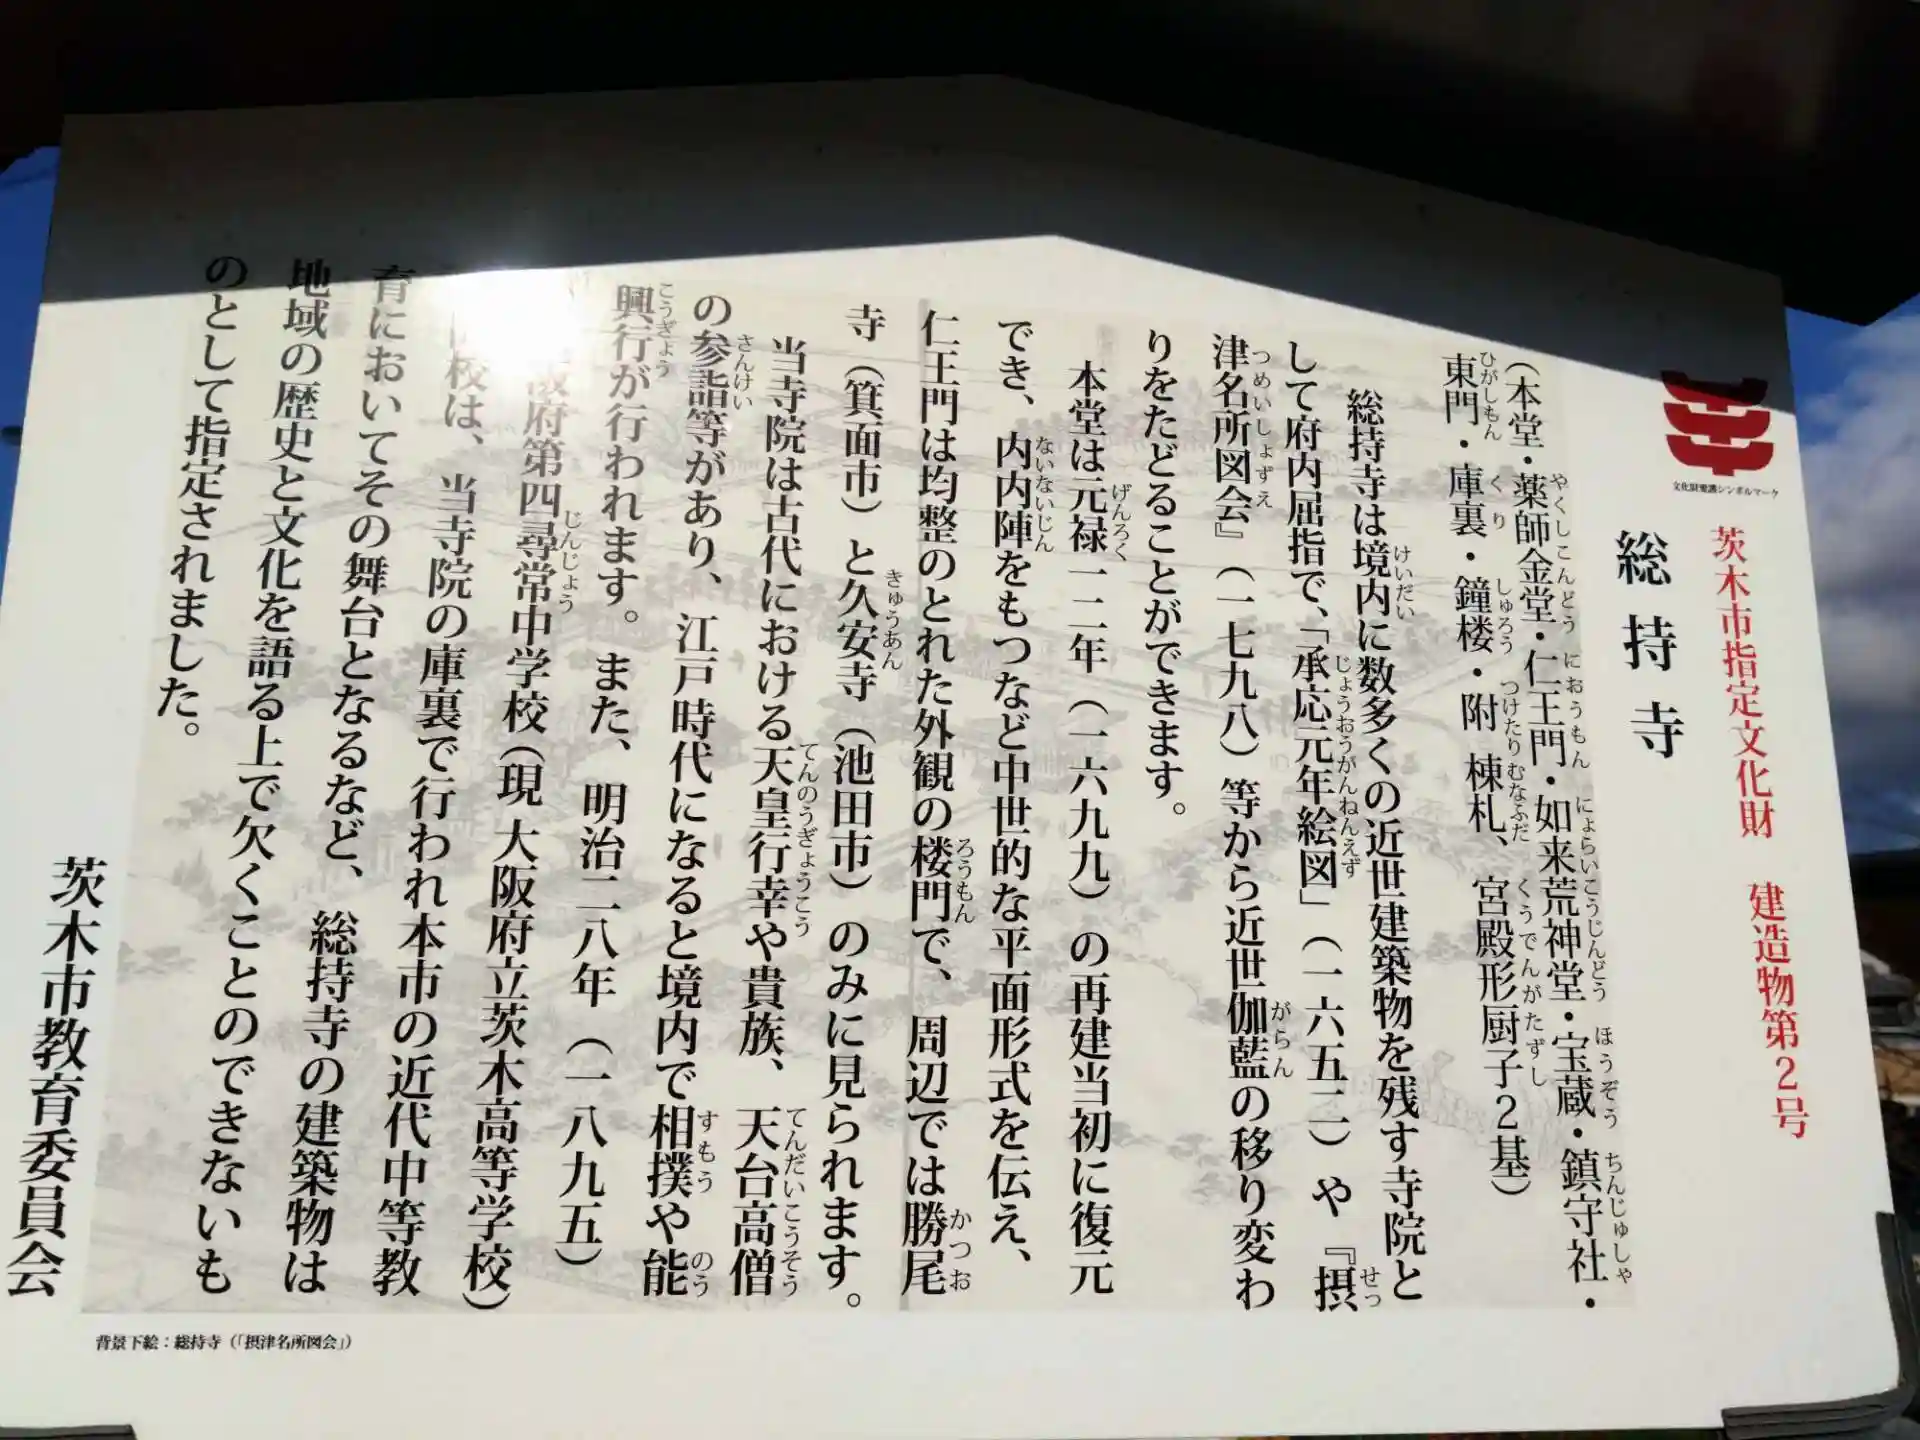 茨木市指定文化財　建造物第2号
文化財愛護シンボルマーク
総持寺
（本堂・薬師金堂・仁王門・如来荒神堂・宝蔵・鎮守社・
東門・庫裏・鐘楼・附 棟札、宮殿形厨子2基）
総持寺は境内に数多くの近世建築物を残す寺院と
して府内屈指で、「承応元年絵図」（一六五二）や『摂
津名所図会』（一七九八）等から近世伽藍の移り変わ
りをたどることができます。
本堂は元禄一二年（一六九九）の再建当初に復元
でき、内内陣をもつなど中世的な平面形式を伝え、
仁王門は均整のとれた外観の楼門で、周辺では勝尾
寺（箕面市）と久安寺（池田市）のみに見られます。
当寺院は古代における天皇行幸や貴族、天台高僧
の参詣等があり、江戸時代になると境内で相撲や能
興行が行われます。また、明治二八年（一八九五）
阪府第四尋常中学校（現 大阪府立茨木高等学校）
校は、当寺院の庫裏で行われ本市の近代中等教
育においてその舞台となるなど、総持寺の建築物は
地域の歴史と文化を語る上で欠くことのできないも
のとして指定されました。
茨木市教育委員会
背景下絵：総持寺（「摂津名所図会」）